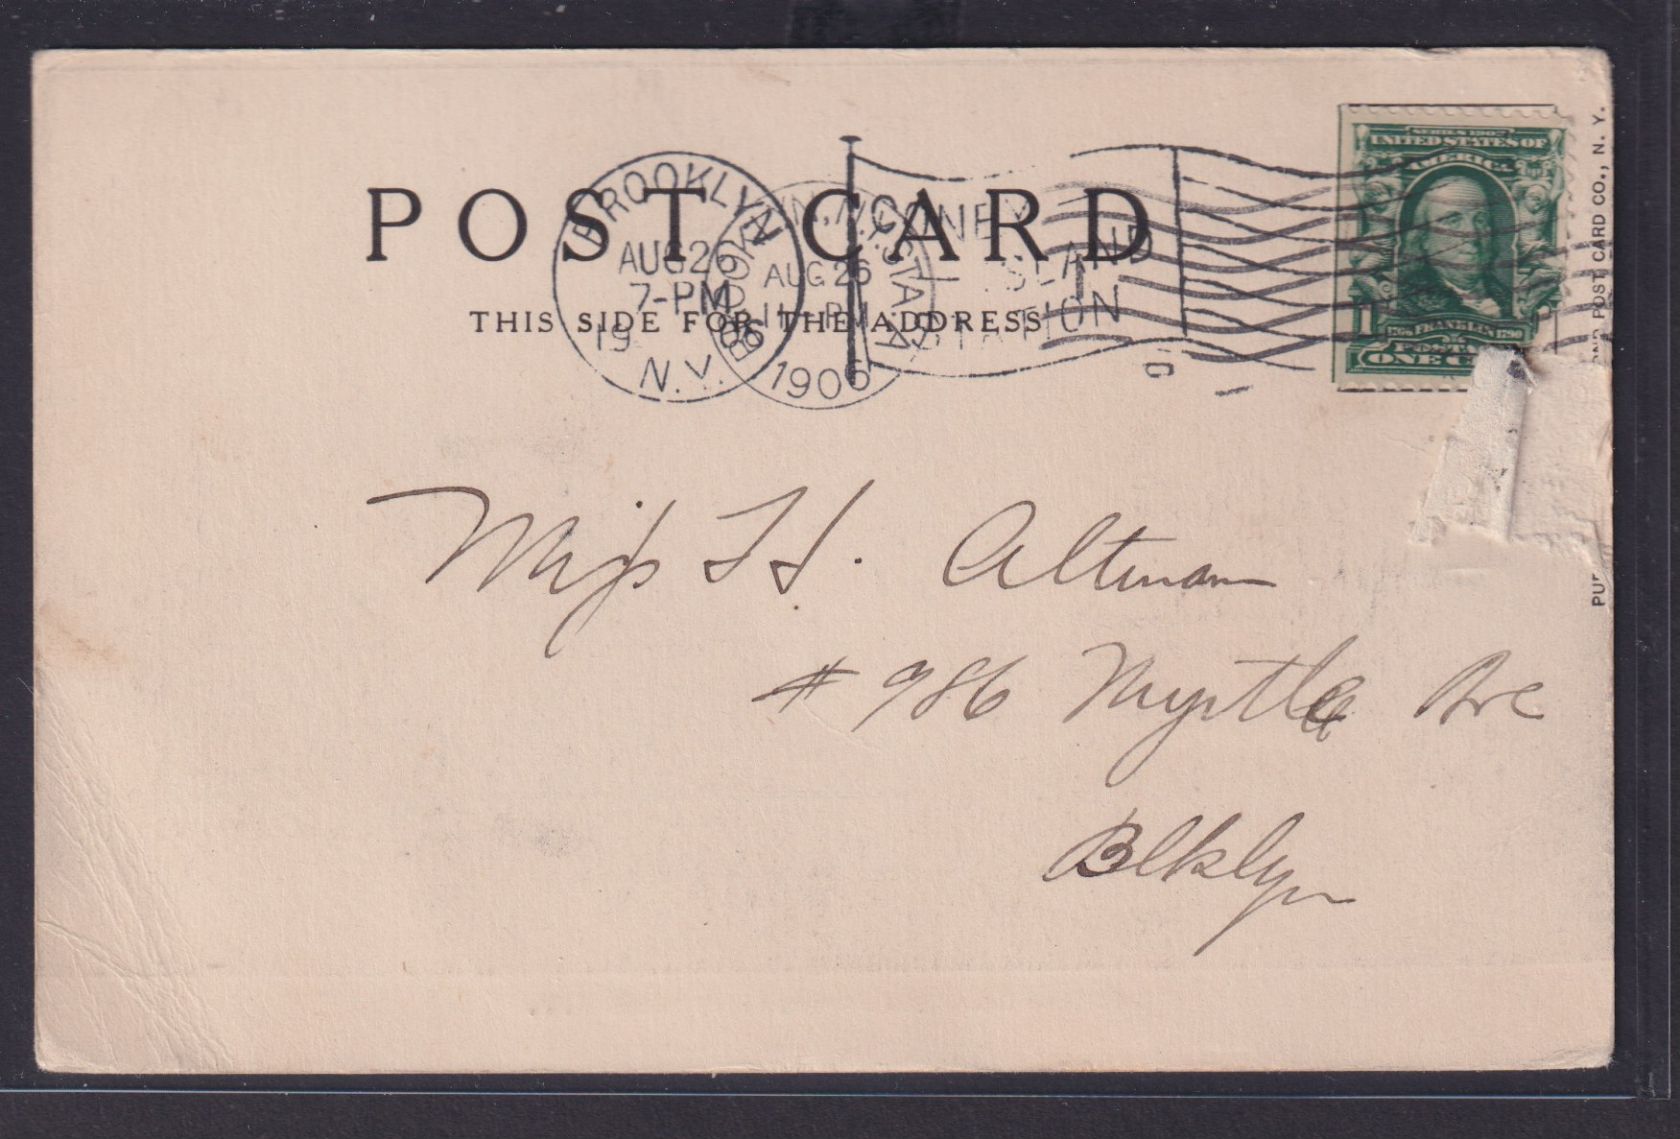 POST CARD
THIS SIDE FOR THE ADDRESS
BROOKLYN
AUG 26
7-PM
19
N.Y.
BROOKLYN, N.Y. STA.
AUG 26
11-PM
1906
CONEY
ISLAND
STATION
SERIES 1902
UNITED STATES OF
AMERICA
1
FRANKLIN
ONE
POST CARD CO., N. Y.
PU
Miss H. Altman
# 986 Myrtle Ave
Bklyn